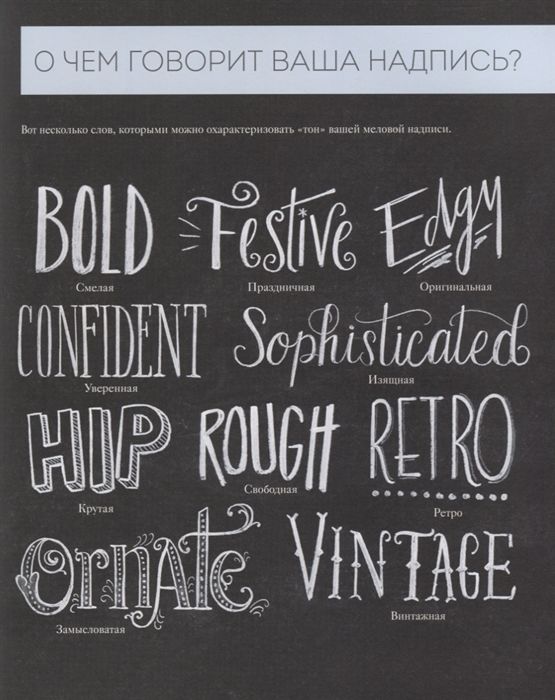 О ЧЕМ ГОВОРИТ ВАША НАДПИСЬ?
Вот несколько слов, которыми можно охарактеризовать «тон» вашей меловой надписи.
BOLD Festive Edgy
Смелая Праздничная Оригинальная
CONFIDENT Sophisticated
Уверенная Изящная
HIP ROUGH RETRO
Крутая Свободная Ретро
Ornate VINTAGE
Замысловатая Винтажная